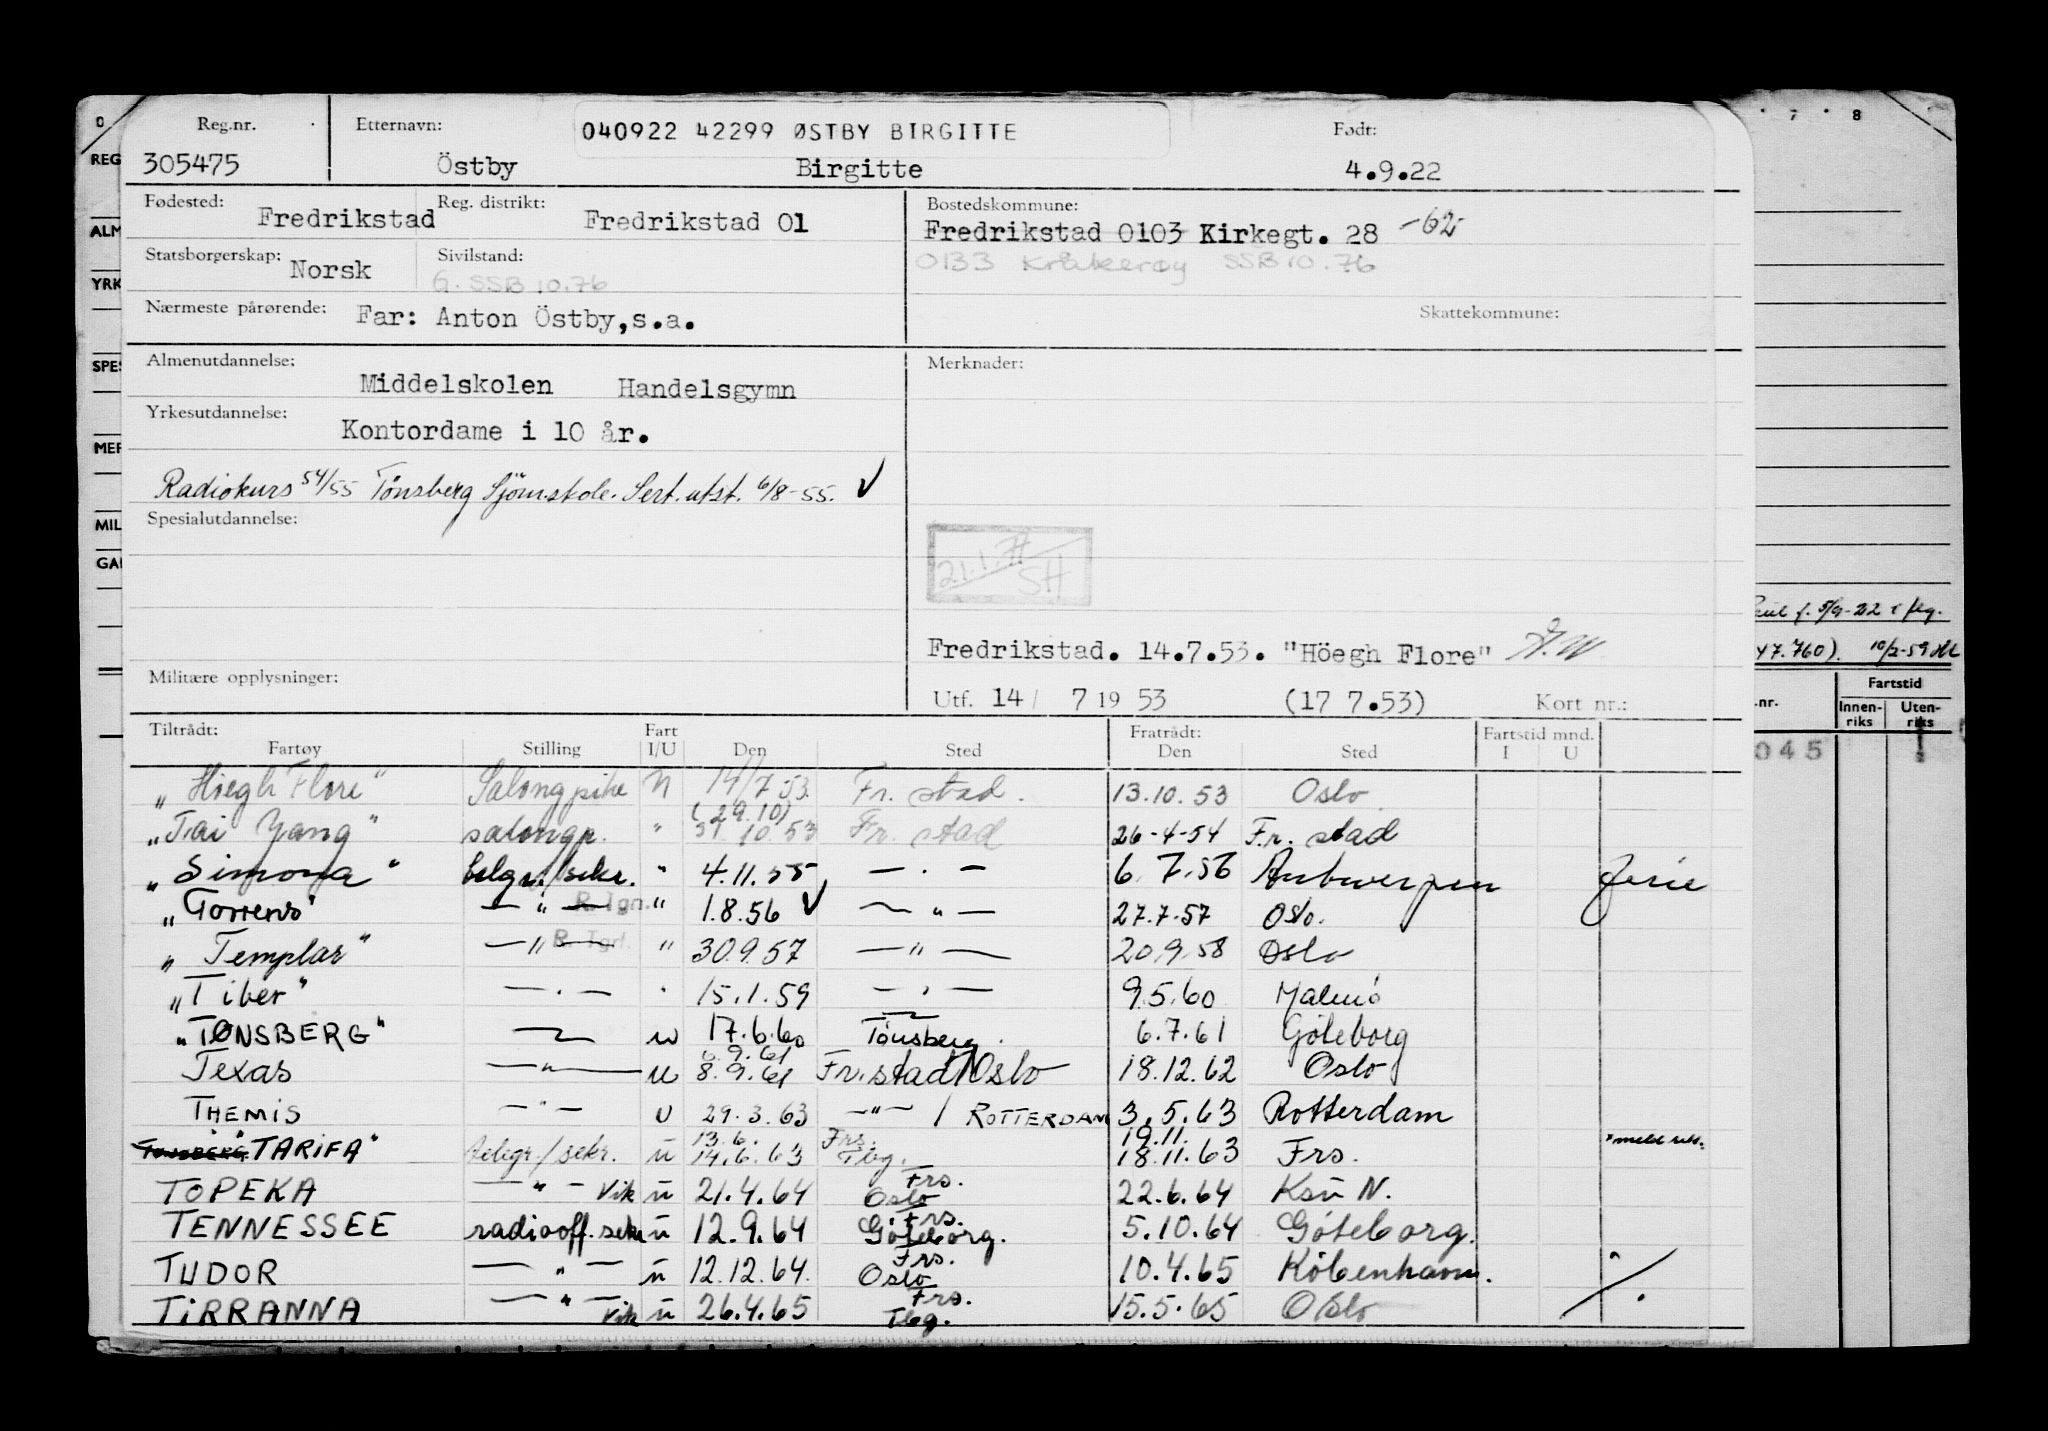 0 7 8
Reg.nr. Etternavn: 040922 42299 ØSTBY BIRGITTE Født:
305475 Östby Birgitte 4.9.22
REG
Fødested: Fredrikstad Reg. distrikt: Fredrikstad 01 Bostedskommune:
Fredrikstad 0103 Kirkegt. 28 -62
ALM
Statsborgerskap: Norsk Sivilstand: G. SSB 10.76 0133 Kråkerøy SSB 10.76
YRK
Nærmeste pårørende: Far: Anton Östby, s.a. Skattekommune:
SPES
Almenutdannelse: Middelskolen Handelsgymn Merknader:
Yrkesutdannelse: Kontordame i 10 år.
MER
Radiokurs 54/55 Tönsberg Sjömskole. Sert. utst. 6/8-55. V
MIL
Spesialutdannelse:
GA
21.1.77 SH
f. 5/9-22 i
Fredrikstad. 14.7.53. "Höegh Flore"
47.760). 10/2-59
Militære opplysninger:
Utf. 14/ 7 19 53 (17 7.53) Kort nr.:
.nr. Fartstid
Innen-riks Uten-riks
045
Tiltrådt: Fart Fratrådt: Fartstid mnd.
Fartøy Stilling I/U Den Sted Den Sted I U
"Höegh Flore" Salongpike U 14/7.53. Fr. stad. 13.10.53 Oslo
(29.10)
"Tai Yang" salongp. " 31.10.53 Fr. stad 26-4-54 Fr. stad
"Simona" telgr./sekr. " 4.11.55 — . — 6.7.56 Antwerpen ferie
"Torrens" — " — R.Tgn. " 1.8.56 V — " — 27.7.57 Oslo.
"Templar" — " — R. Tgn. " 30.9.57 — " — 20.9.58 Oslo
"Tiber" — . — " 15.1.59 — " — 9.5.60 Malmö
"TØNSBERG" — u 17.6.60 Tönsberg. 6.7.61 Göteborg
6.9.61
Texas — " — u 8.9.61 Fr.stad/Oslo 18.12.62 Oslo
THEMIS — " — U 29.3.63 — " — / ROTTERDAM 3.5.63 Rotterdam
13.6. Frs. 19.11.
TØNSBERG "TARIFA" telegr./sekr. u 14.6.63 Tbg. 18.11.63 Frs.
TOPEKA — " — Vik u 21.4.64 Frs. Oslo 22.6.64 Ksu N.
TENNESSEE radiooff. sekr u 12.9.64 Frs. Göteborg. 5.10.64 Göteborg.
TUDOR — " — u 12.12.64. Frs. Oslo 10.4.65 Köbenhavn.
TIRRANNA — " — Vik u 26.4.65 Frs. Tbg. 15.5.65 Oslo